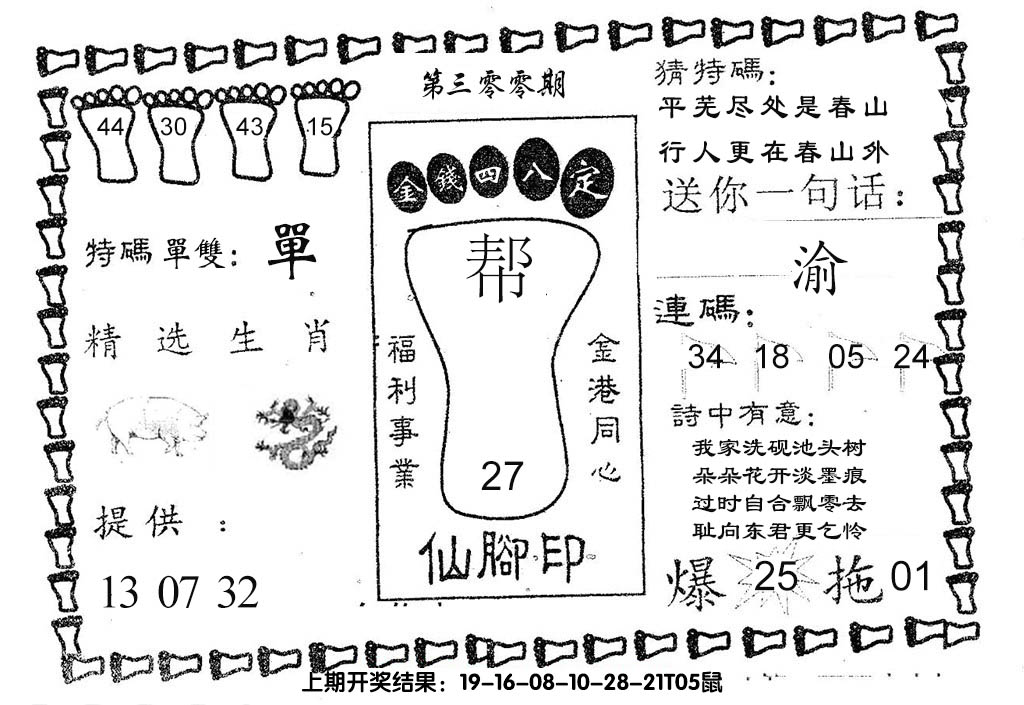 第三零零期
44 30 43 15
特碼單雙：單
精选生肖
提供：
13 07 32
金錢四八定
帮
福利事業
金港同心
27
仙腳印
猜特碼：
平芜尽处是春山
行人更在春山外
送你一句话：
渝
連碼：
34 18 05 24
詩中有意：
我家洗砚池头树
朵朵花开淡墨痕
过时自合飘零去
耻向东君更乞怜
爆 25 拖 01
上期开奖结果：19-16-08-10-28-21T05鼠